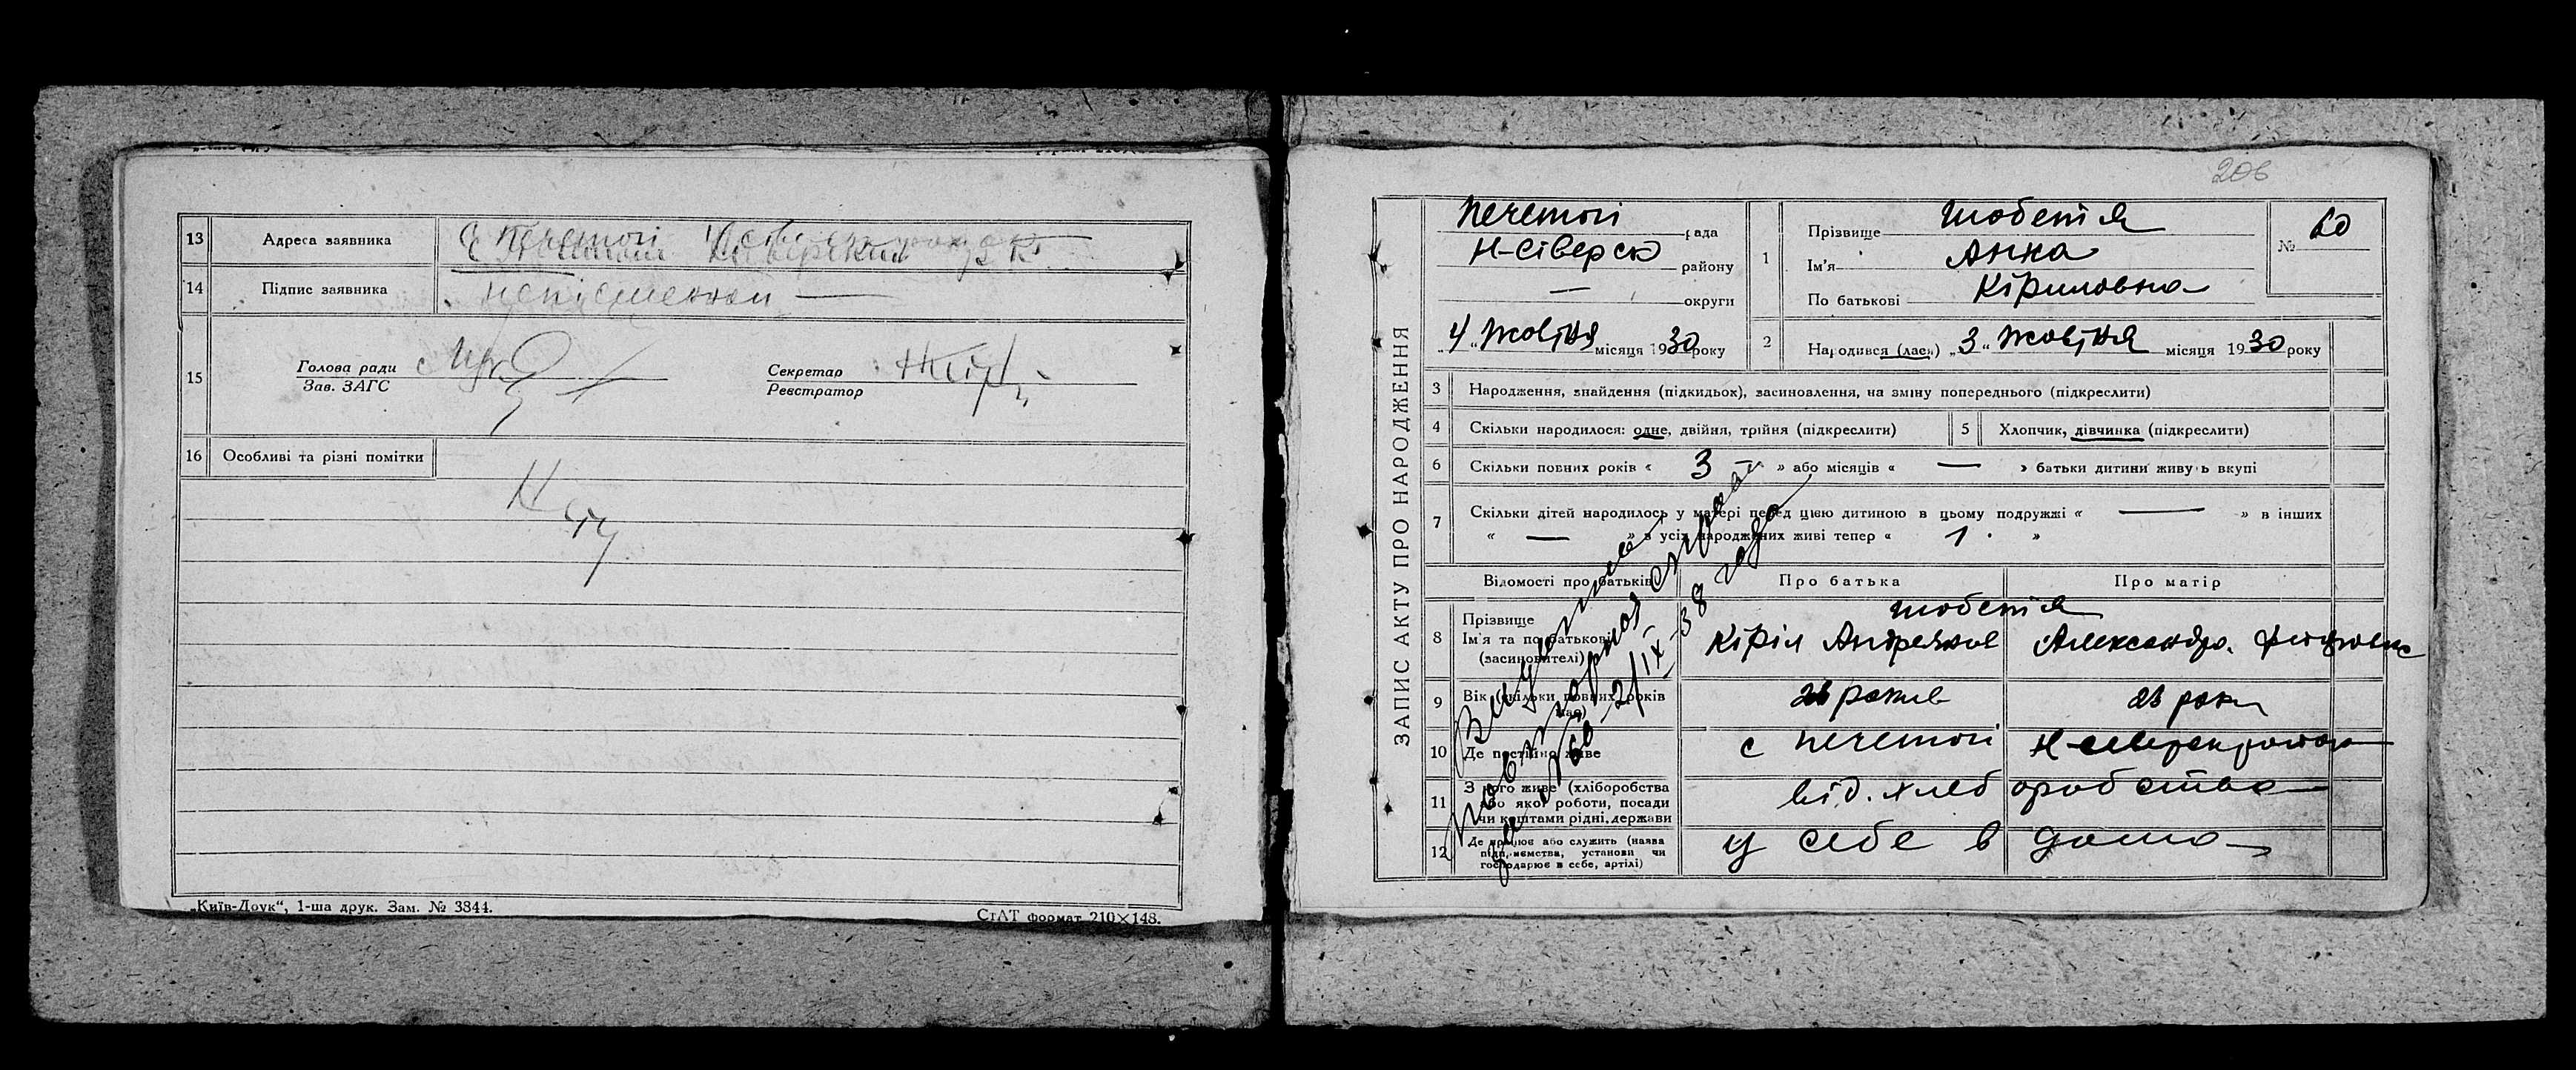 13 Адреса заявника
14 Підпис заявника
15 Голова ради
Зав. ЗАГС
Секретар
Реєстратор
16 Особливі та різні помітки
„Київ-Друк“, 1-ша друк. Зам. № 3844.
СтАТ формат 210×148.
206
ЗАПИС АКТУ ПРО НАРОДЖЕННЯ
Печеноги рада
Н-Сіверск району
— округи
„4“ Жовтня місяця 1930 року
1 Прізвище Шобетя
Ім'я Анна
По батькові Кіриловна
№ 60
2 Народився (лась) „3“ Жовтня місяця 1930 року
3 Народження, знайдення (підкидьок), засиновлення, на зміну попереднього (підкреслити)
4 Скільки народилося: одне, двійня, трійня (підкреслити)
5 Хлопчик, дівчинка (підкреслити)
6 Скільки повних років « 3 » або місяців « — » батьки дитини живуть вкупі
7 Скільки дітей народилось у матері перед цією дитиною в цьому подружжі « — » в інших
« — » з усіх народжених живі тепер « 1 »
Відомості про батьків Про батька Про матір
8 Прізвище
Ім'я та по батькові
(засиновителі)
Шобетя
Кіріл Александра
9 Вік (скільки повних років має) років 23 роки
10 Де постійно живе с
11 З чого живе (хліборобства
або якої роботи, посади
чи коштами рідні, держави
від. хлеборобства
12 Де працює або служить (назва
підприємства, установи чи
господарює в себе, артілі)
у себе в дома
Выдано
повторное
№ 60 2/IX-38 года